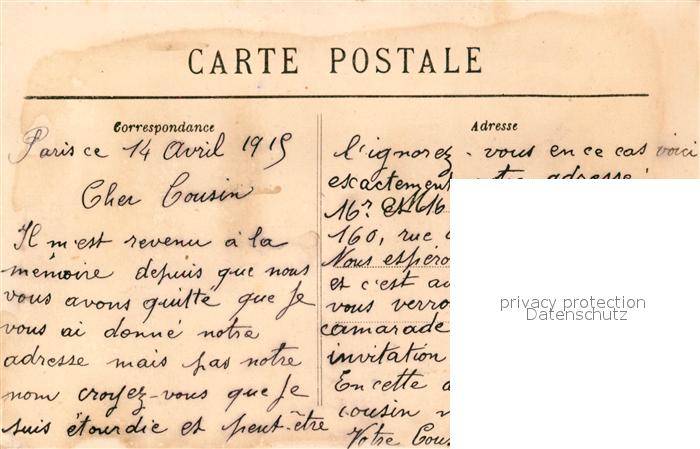 CARTE POSTALE
Correspondance
Paris ce 14 Avril 1915
Cher Cousin
Il m'est revenu à la
mémoire depuis que nous
vous avons quitté que je
vous ai donné notre
adresse mais pas notre
nom croyez-vous que je
suis étourdie et peut-être
Adresse
l'ignorez-vous en ce cas voici
exactement adresse:
160, rue
Nous espéro
et c'est au
vous verro
camarade
invitation
En cette
cousin
Votre Cous
privacy protection
Datenschutz